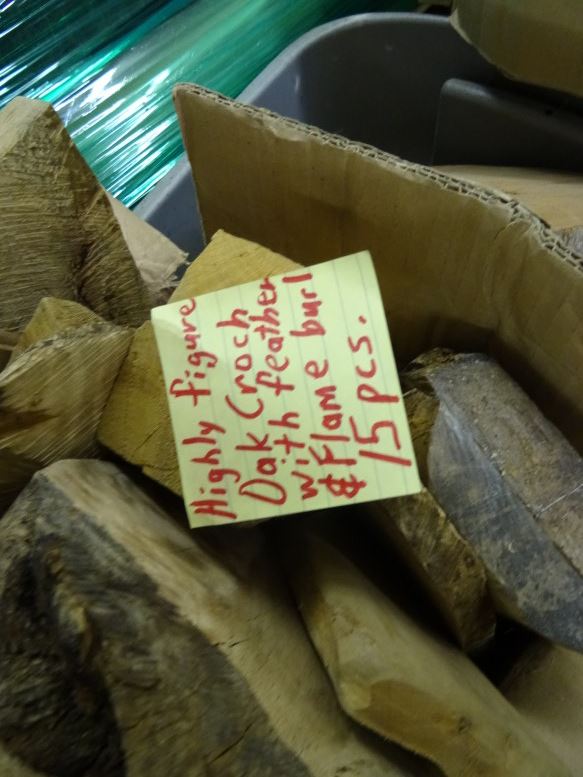 Highly figure
Oak Croch
with feather
& Flame burl
15 pcs.